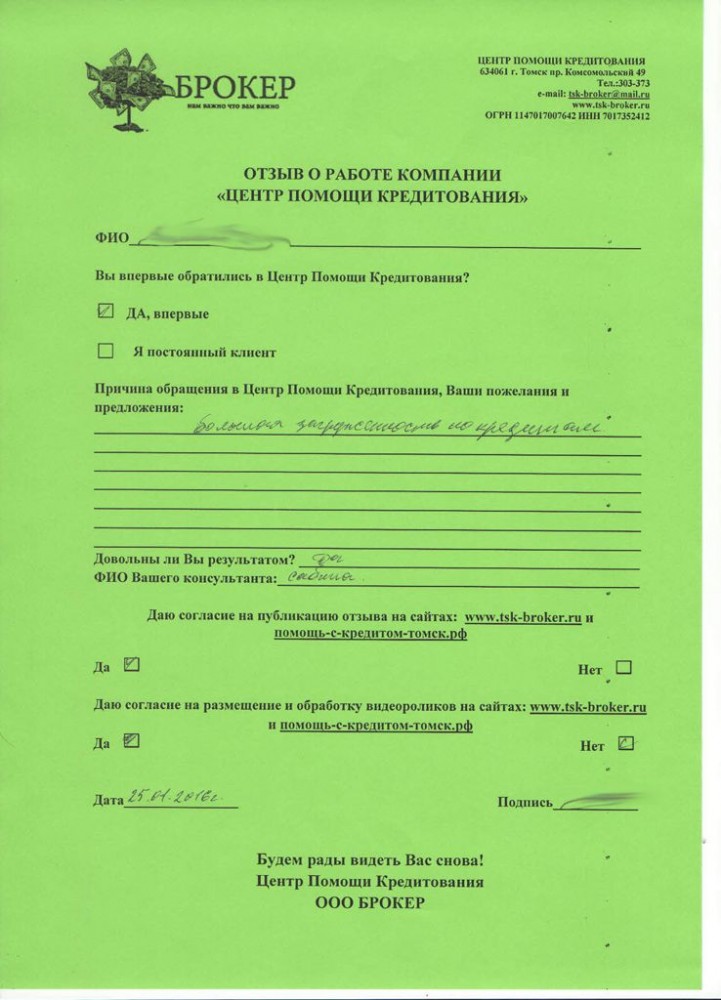 БРОКЕР
НАМ ВАЖНО ЧТО ВАМ ВАЖНО
ЦЕНТР ПОМОЩИ КРЕДИТОВАНИЯ
634061 г. Томск пр. Комсомольский 49
Тел.:303-373
e-mail: tsk-broker@mail.ru
www.tsk-broker.ru
ОГРН 1147017007642 ИНН 7017352412
ОТЗЫВ О РАБОТЕ КОМПАНИИ
«ЦЕНТР ПОМОЩИ КРЕДИТОВАНИЯ»
ФИО
Вы впервые обратились в Центр Помощи Кредитования?
ДА, впервые
Я постоянный клиент
Причина обращения в Центр Помощи Кредитования, Ваши пожелания и
предложения:
большая загруженность по кредитам
Довольны ли Вы результатом? да
ФИО Вашего консультанта: Сабина.
Даю согласие на публикацию отзыва на сайтах: www.tsk-broker.ru и
помощь-с-кредитом-томск.рф
Да Нет
Даю согласие на размещение и обработку видеороликов на сайтах: www.tsk-broker.ru
и помощь-с-кредитом-томск.рф
Да Нет
Дата 25.01.2016г. Подпись
Будем рады видеть Вас снова!
Центр Помощи Кредитования
ООО БРОКЕР